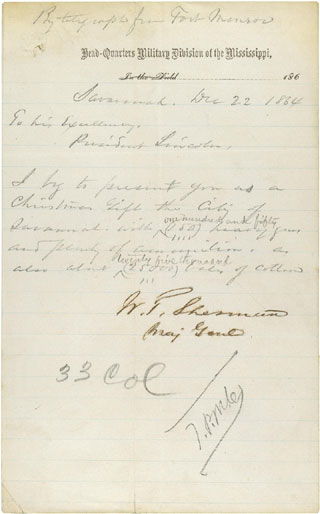 By telegraph from Fort Monroe
Head-Quarters Military Division of the Mississippi,
In the Field 186
Savannah. Dec 22 1864
To his Excellency,
President Lincoln,
I beg to present you as a
Christmas Gift the City of
one hundred and fifty
Savannah with (150) heavy guns
and plenty of ammunition. as
twenty five thousand
also about (25000) bales of cotton
W. T. Sherman
Maj Genl
33 Col